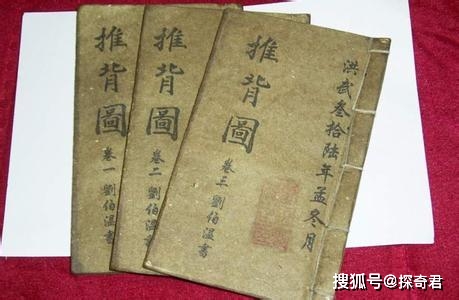 推背圖
卷一 劉伯溫書
推背圖
卷二 劉伯溫書
洪武叁拾陸年孟冬月
推背圖
卷三 劉伯溫書
搜狐号@探奇君